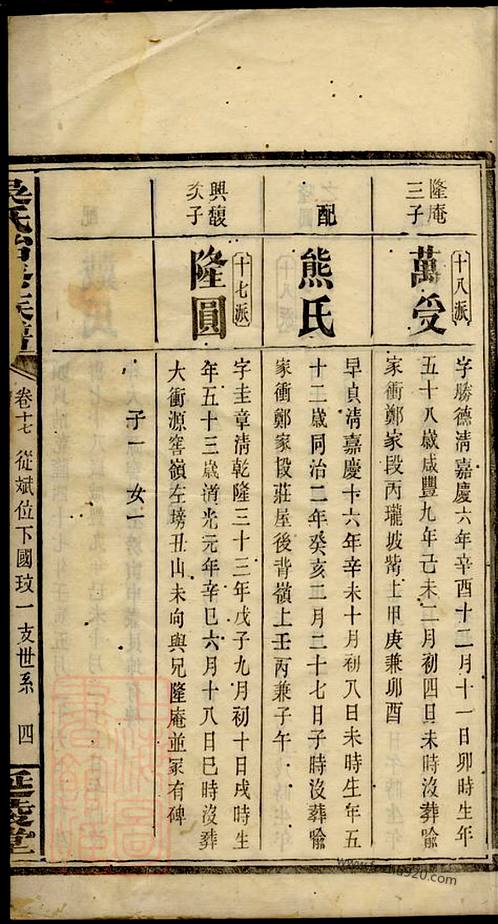 隆庵
三子
十八派
萬受
字勝德清嘉慶六年辛酉十二月十一日卯時生年
五十八歲咸豐九年己未二月初四日未時沒葬喻
家衝鄭家段丙瓏坡嘴上甲庚兼卯酉
配
熊氏
早貞清嘉慶十六年辛未十月初八日未時生年五
十二歲同治二年癸亥二月二十七日子時沒葬喻
家衝鄭家塅莊屋後背嶺上壬丙兼子午
興馥
次子
十七派
隆圓
字圭章清乾隆三十三年戊子九月初十日戌時生
年五十三歲道光元年辛巳六月十八日巳時沒葬
大衝源窖嶺左塝丑山未向與兄隆庵並冢有碑
子一 女一
卷十七 從斌位下國玟一支世系 四
延陵堂
www.family920.com